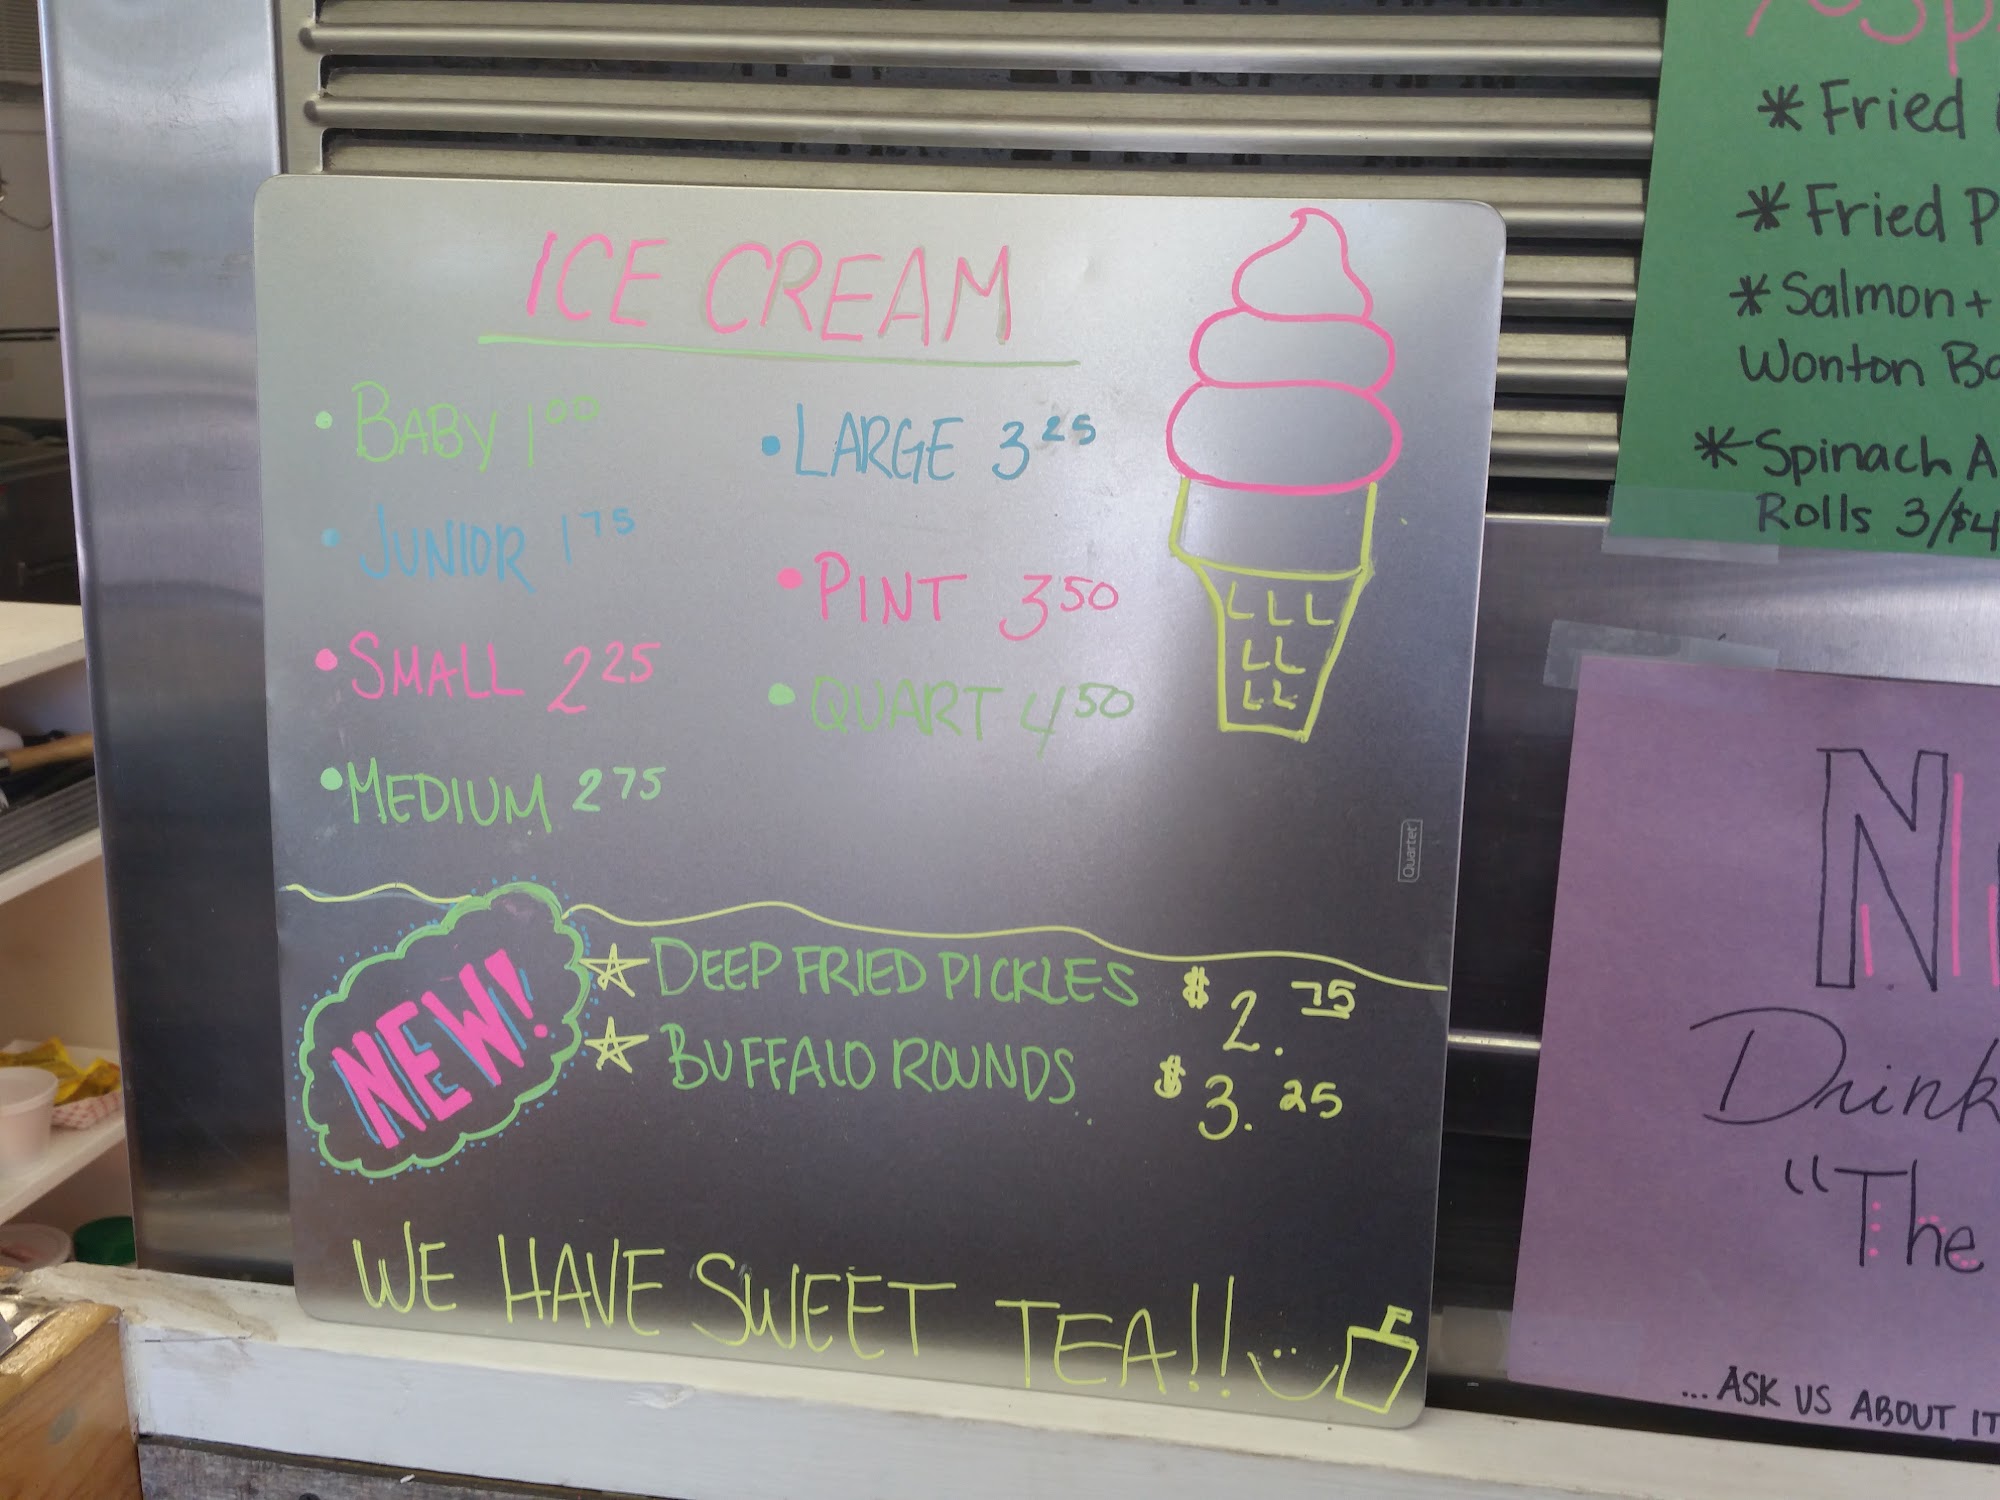 ICE CREAM
• BABY 1⁰⁰
• JUNIOR 1⁷⁵
• SMALL 2²⁵
• MEDIUM 2⁷⁵
• LARGE 3²⁵
• PINT 3⁵⁰
• QUART 4⁵⁰
Quartet
NEW!
☆ DEEP FRIED PICKLES $2.⁷⁵
☆ BUFFALO ROUNDS $3.²⁵
WE HAVE SWEET TEA!!
* Fried
* Fried P
* Salmon +
Wonton Bo
* Spinach A
Rolls 3/$4
N
Drink
"The
...ASK US ABOUT IT